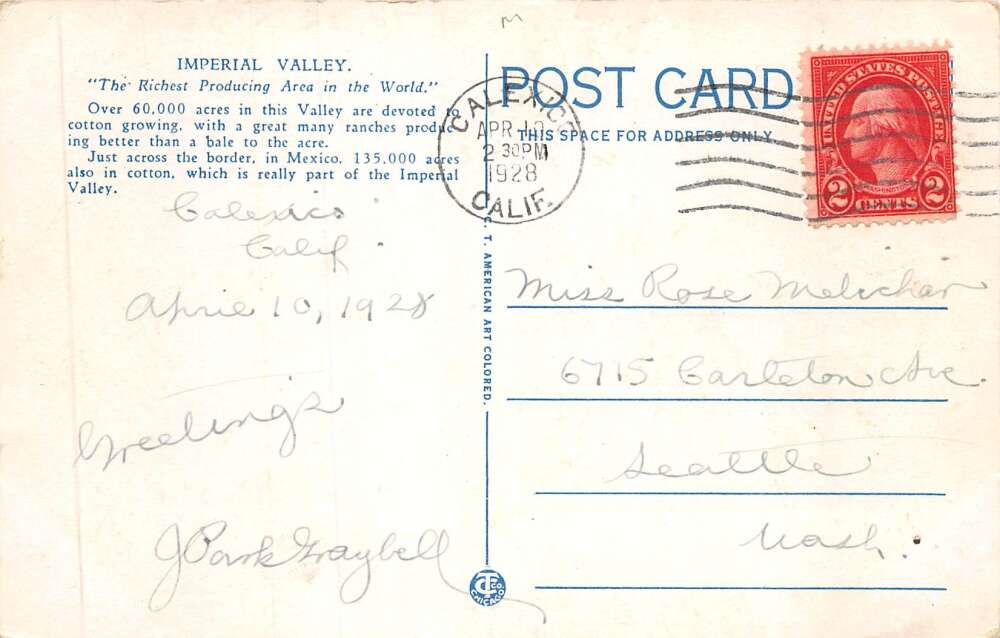 IMPERIAL VALLEY.
"The Richest Producing Area in the World."
Over 60,000 acres in this Valley are devoted to
cotton growing, with a great many ranches produc-
ing better than a bale to the acre.
Just across the border, in Mexico, 135,000 acres
also in cotton, which is really part of the Imperial
Valley.
Calexico
Calif
April 10, 1928
Greetings
J Park Graybell
C. T. AMERICAN ART COLORED.
CT CO. CHICAGO
POST CARD
THIS SPACE FOR ADDRESS ONLY
CALEXICO
APR 10
2 30 PM
1928
CALIF.
UNITED STATES POSTAGE
WASHINGTON
2 CENTS 2
Miss Rose Melichar
6715 Carleton Ave.
Seattle
Wash.